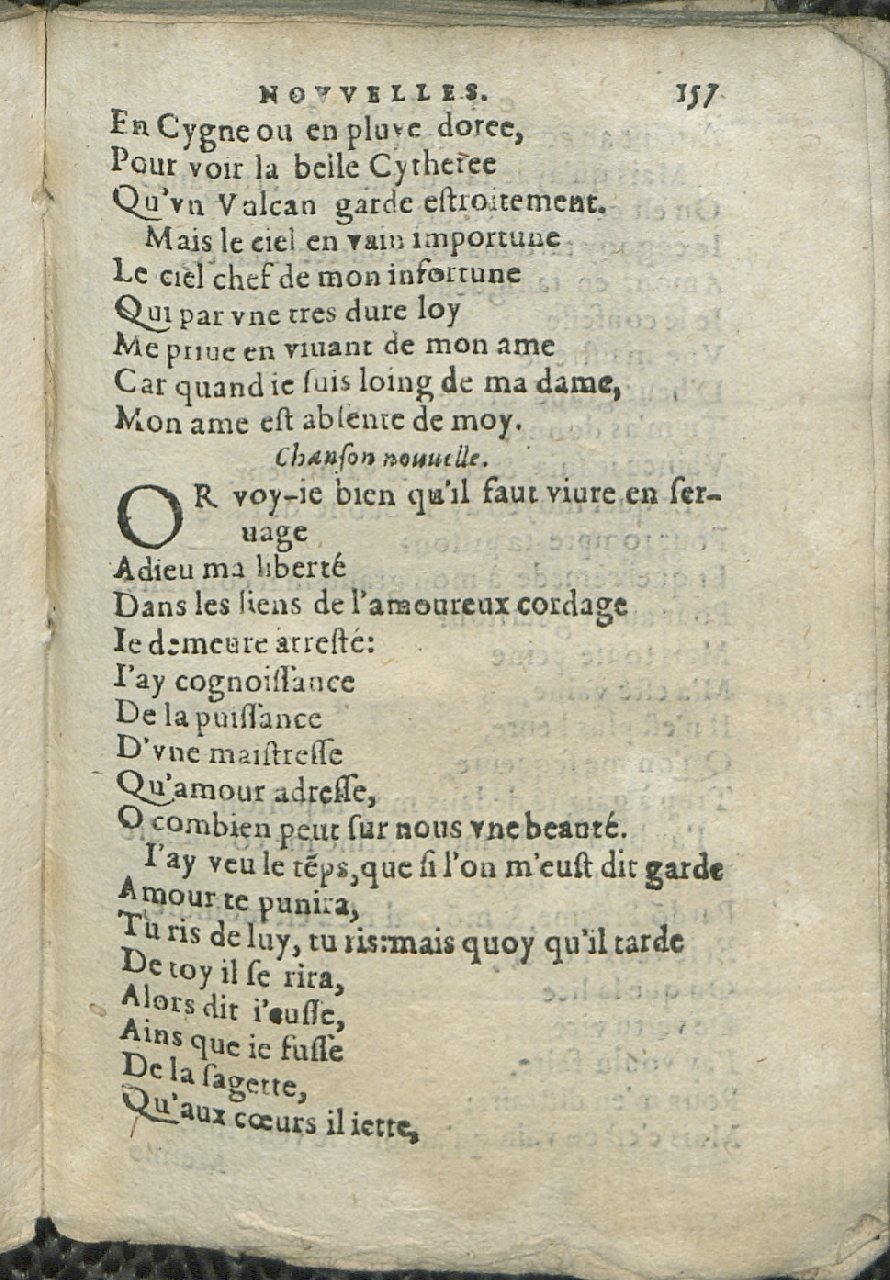 NOVVELLES. 157
En Cygne ou en pluye doree,
Pour voir la belle Cytheree
Qu'vn Vulcan garde eſtroitement.
Mais le ciel en vain importune
Le ciel chef de mon infortune
Qui par vne tres dure loy
Me priue en viuant de mon ame
Car quand ie ſuis loing de ma dame,
Mon ame eſt abſente de moy.
Chanſon nouuelle.
OR voy-ie bien qu'il faut viure en ſer-
uage
Adieu ma liberté
Dans les liens de l'amoureux cordage
Ie demeure arreſté:
I'ay cognoiſſance
De la puiſſance
D'vne maiſtreſſe
Qu'amour adreſſe,
O combien peut ſur nous vne beauté.
I'ay veu le tẽps, que ſi l'on m'euſt dit garde
Amour te punira,
Tu ris de luy, tu ris: mais quoy qu'il tarde
De toy il ſe rira,
Alors dit i'euſſe,
Ains que ie fuſſe
De la ſagette,
Qu'aux cœurs il iette,